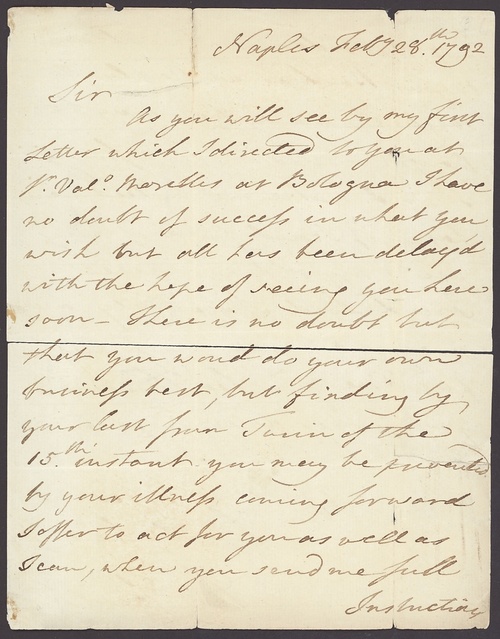 Naples Feby 28.th 1792
Sir
As you will see by my first
Letter which I directed to you at
at Bologna I have
no doubt of success in what you
wish but all has been delay'd
with the hope of seeing you here
soon - There is no doubt but
that you would do your own
business best, but finding by
your last from Turin of the
15.th instant you may be prevented
by your illness coming forward
I offer to act for you as well as
I can, when you send me full
Instructions